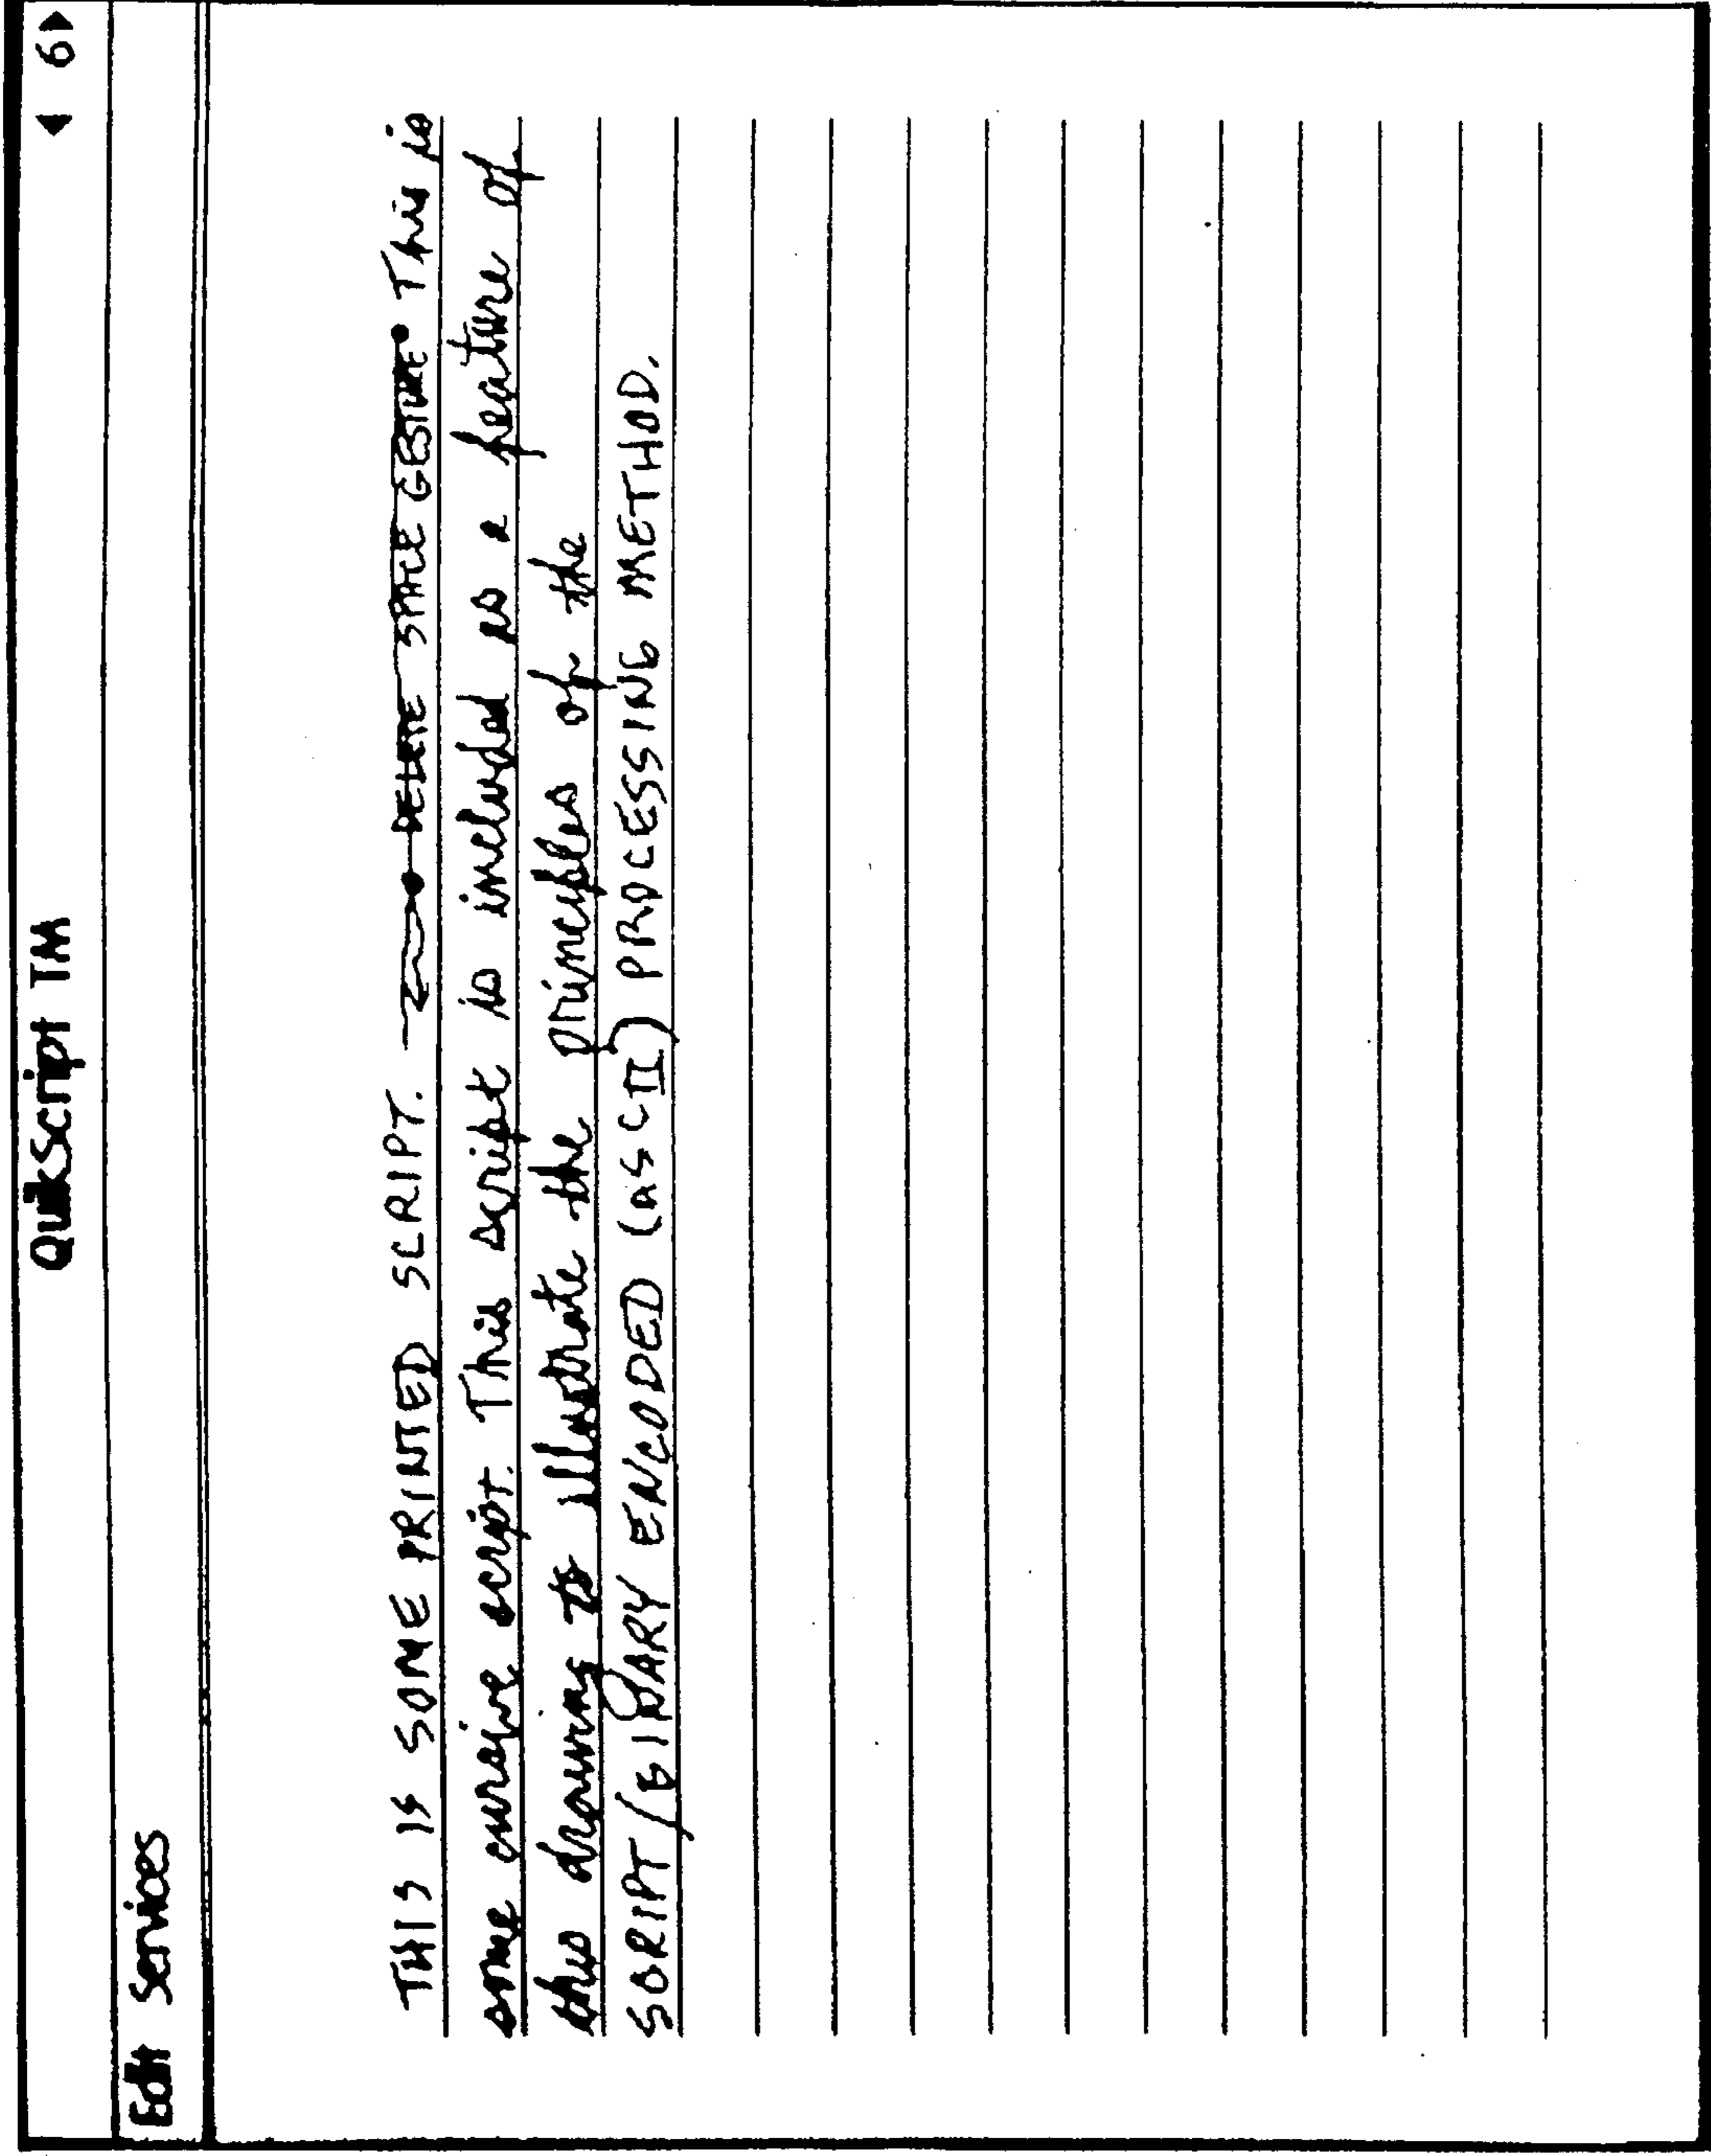 QuikScript TM ◀ 6 ▶
Edit Services
THIS IS SOME PRINTED SCRIPT. DELETE SPACE GESTURE This is
some cursive script. This script is included as a feature of
this drawing to illustrate the principles of the
SCRIPT (BINARY ENCODED (ASCII) PROCESSING METHOD.